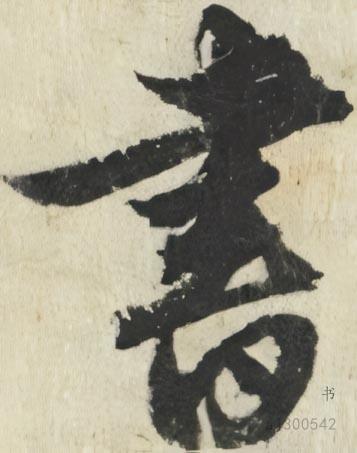 書
书
a1300542